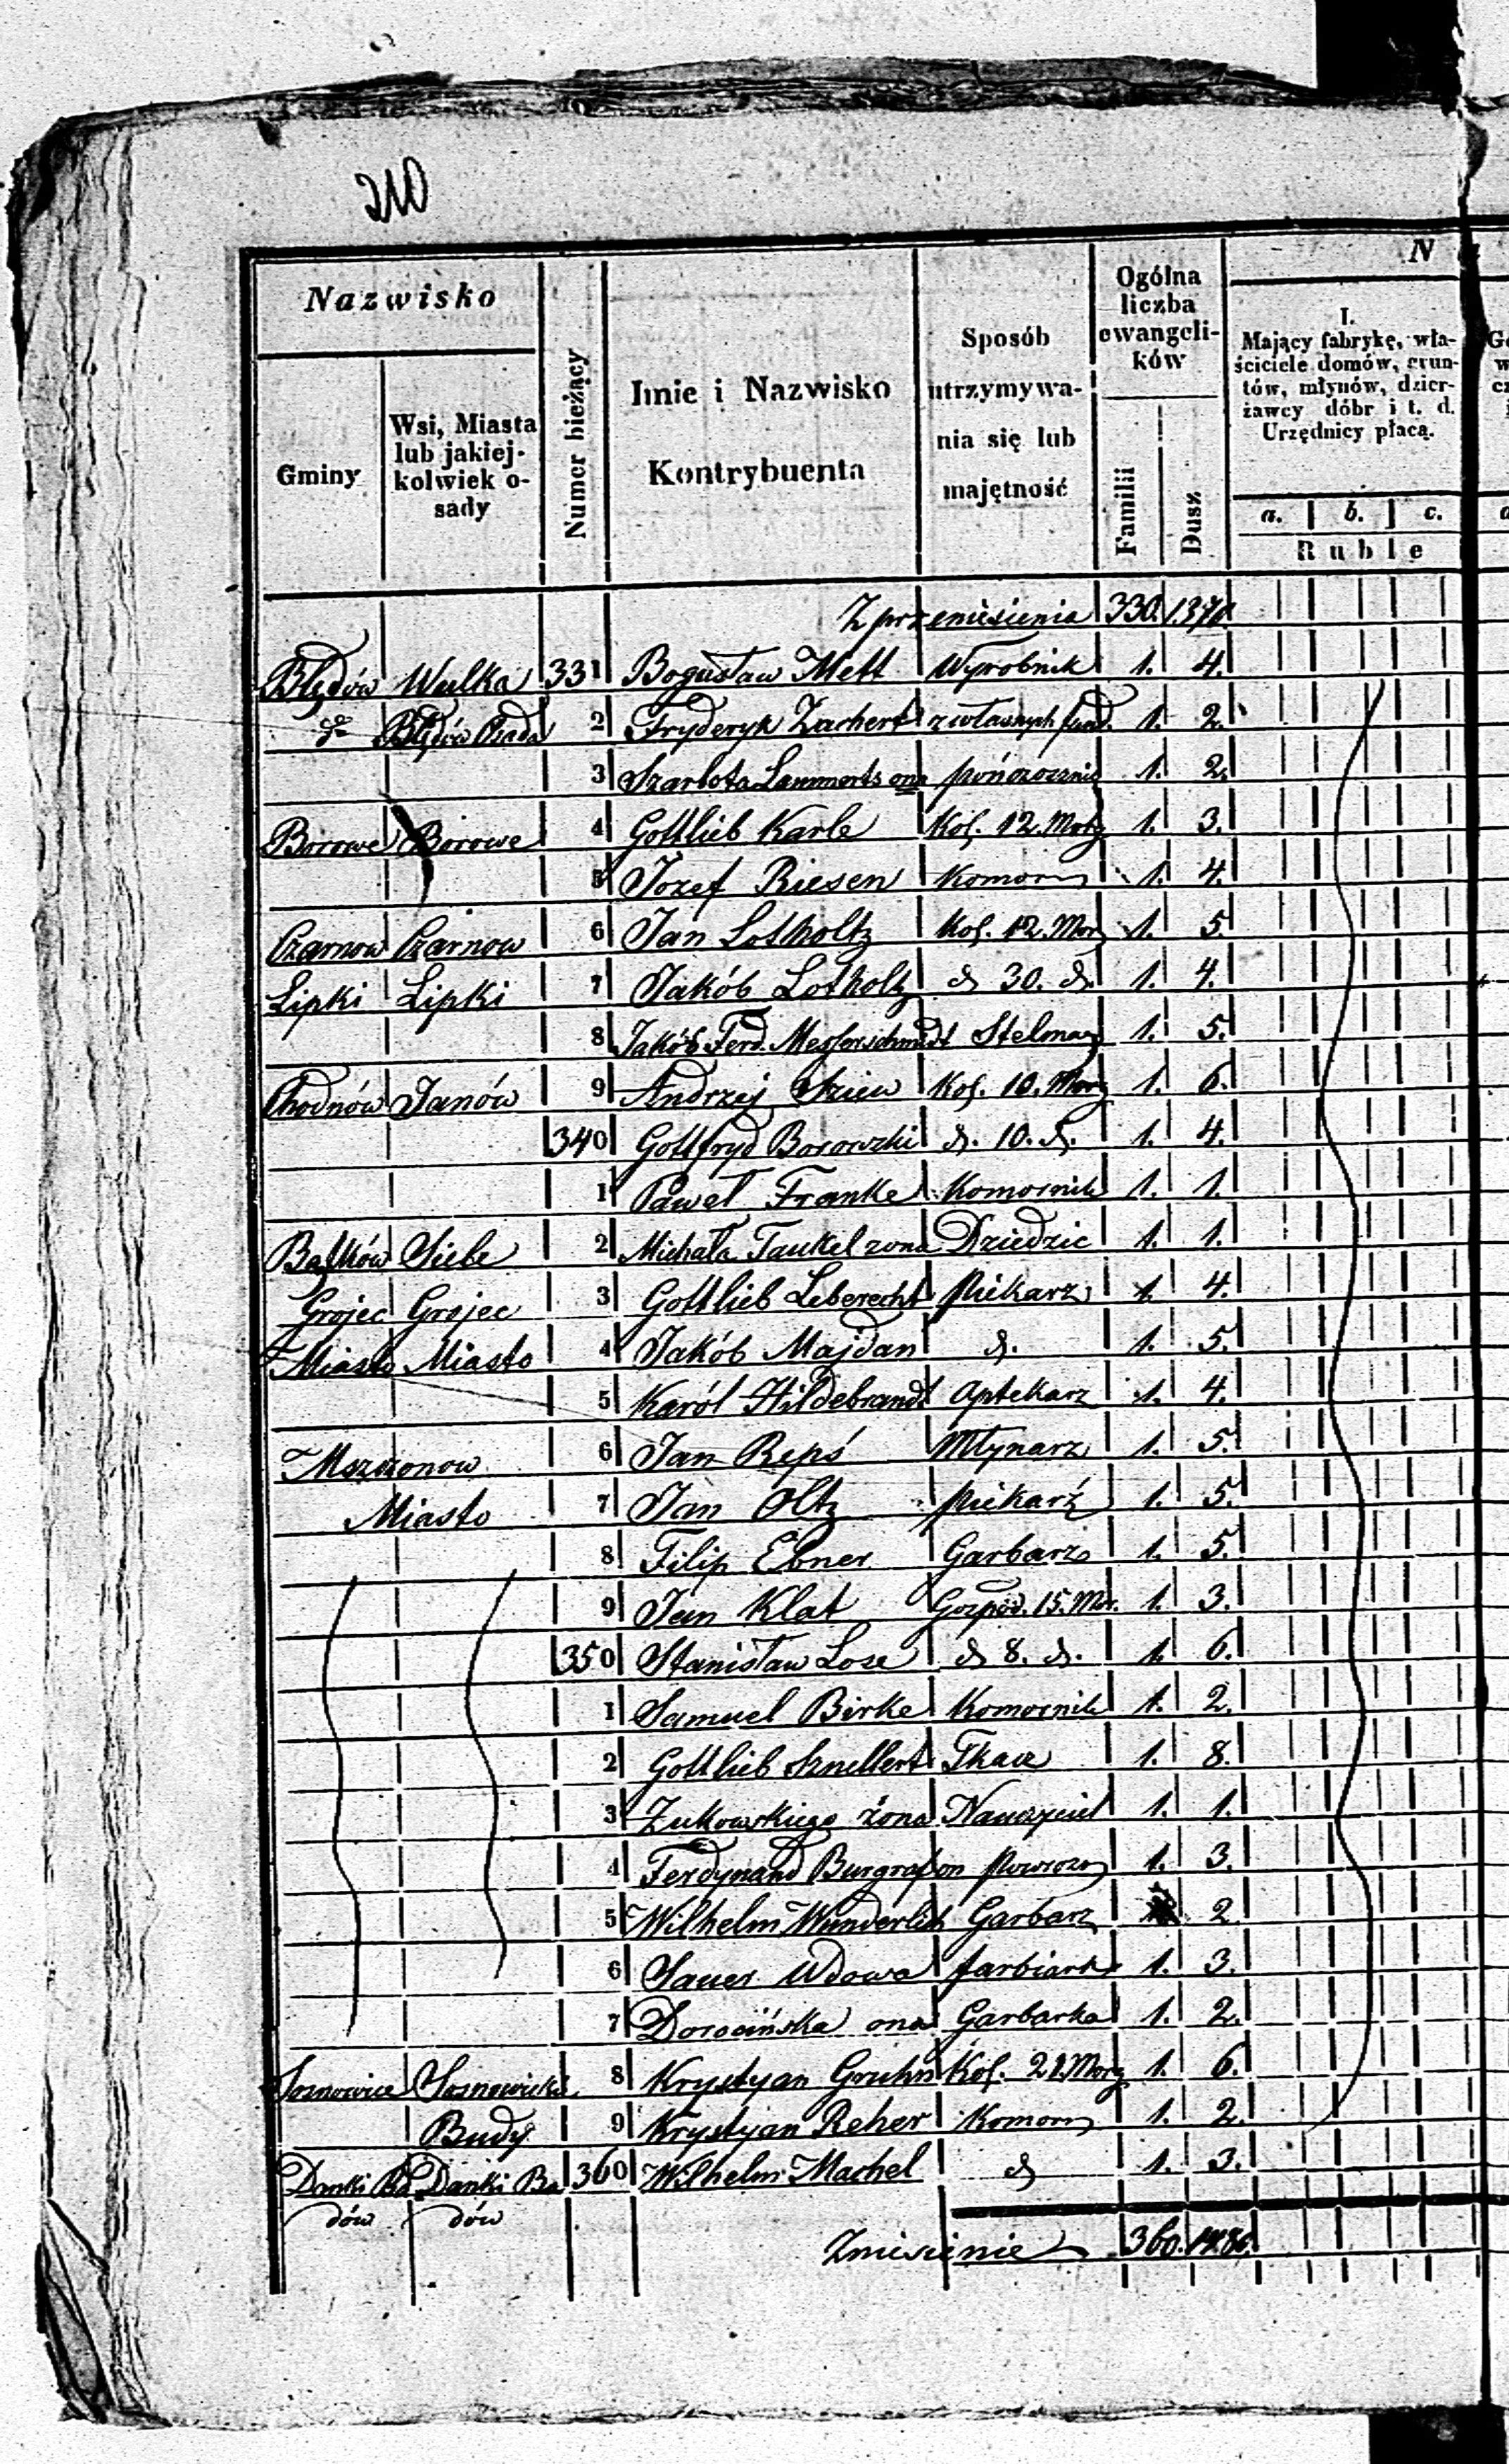 210
N
Nazwisko
Gminy
Wsi, Miasta
lub jakiej-
kolwiek o-
sady
Numer bieżący
Imie i Nazwisko
Kontrybuenta
Sposób
utrzymywa-
nia się lub
majętność
Ogólna
liczba
ewangeli-
ków
Familii
Dusz
I.
Mający fabrykę, wła-
ściciele domów, grun-
tów, młynów, dzier-
żawcy dóbr i t. d.
Urzędnicy płacą.
a. b. c.
Ruble
Z przeniesienia 330. 1370.
Błędów Wulka 331 Bogusław Mett Wyrobnik 1. 4.
do Błędów Osada 2 Fryderyk Zachert z własnych fund. 1. 2.
3 Szarlota Lammerts ona pończosznic 1. 2.
Borowe Borowe 4 Gottlieb Karle Kol. 12. Morg 1. 3.
5 Jozef Riesen Komorn 1. 4.
Czarnow Czarnow 6 Jan Lotholtz Kol. 12. Mor 1. 5.
Lipki Lipki 7 Jakób Lotholtz d 30. d. 1. 4.
8 Jakób Ferd. Messerschmidt Stelmasz 1. 5.
Chodnów Janów 9 Andrzej Kol. 10. Morg 1. 6.
340 Gottfryd Borowzki d. 10. d. 1. 4.
1 Paweł Franke Komornik 1. 1.
Bąków Siebe 2 Michała Taukel zona Dziedzic 1. 1.
Grojec Grojec 3 Gottlieb Leberecht Piekarz 1. 4.
Miasto Miasto 4 Jakób Majdan d. 1. 5.
5 Karól Hildebrandt Aptekarz 1. 4.
Mszczonow 6 Jan Repś Młynarz 1. 5.
Miasto 7 Jan Oltz Piekarz 1. 5.
8 Filip Ebner Garbarz 1. 5.
9 Jan Klat Gospod. 15. Mor. 1. 3.
350 Stanisław Lose d 8. d. 1. 6.
1 Samuel Birke Komornik 1. 2.
2 Gottlieb Sznellert Tkacz 1. 8.
3 Zukowskiego żona Nauczyciel 1. 1.
4 Ferdynand Burgraf on Powrozn 1. 3.
5 Wilhelm Wunderlich Garbarz 2
6 Sauer Wdowa farbiark 1. 3.
7 Dorocińska ona Garbarka 1. 2.
Sosnowice Sosnowickie 8 Krystyan Gruhn Kol. 21. Morg 1. 6.
Budy 9 Krystyan Reher Komorn 1. 2.
Danki Ba Danki Ba 360 Wilhelm Machel d 1. 3.
dów dów
Zniesienie 360. 1480.